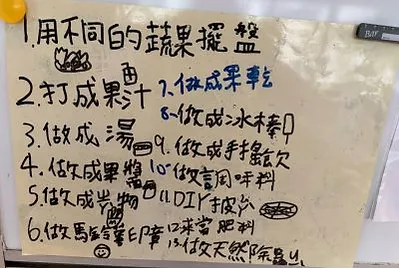 1.用不同的蔬果擺盤
2.打成果汁
3.做成湯
4.做成果醬
5.做成
6.做馬鈴薯印章
7.做成果乾
8.做成冰棒
9.做成手搖飲
10.做調味料
11.DIY披薩
12.來當肥料
13.做天然除蟲